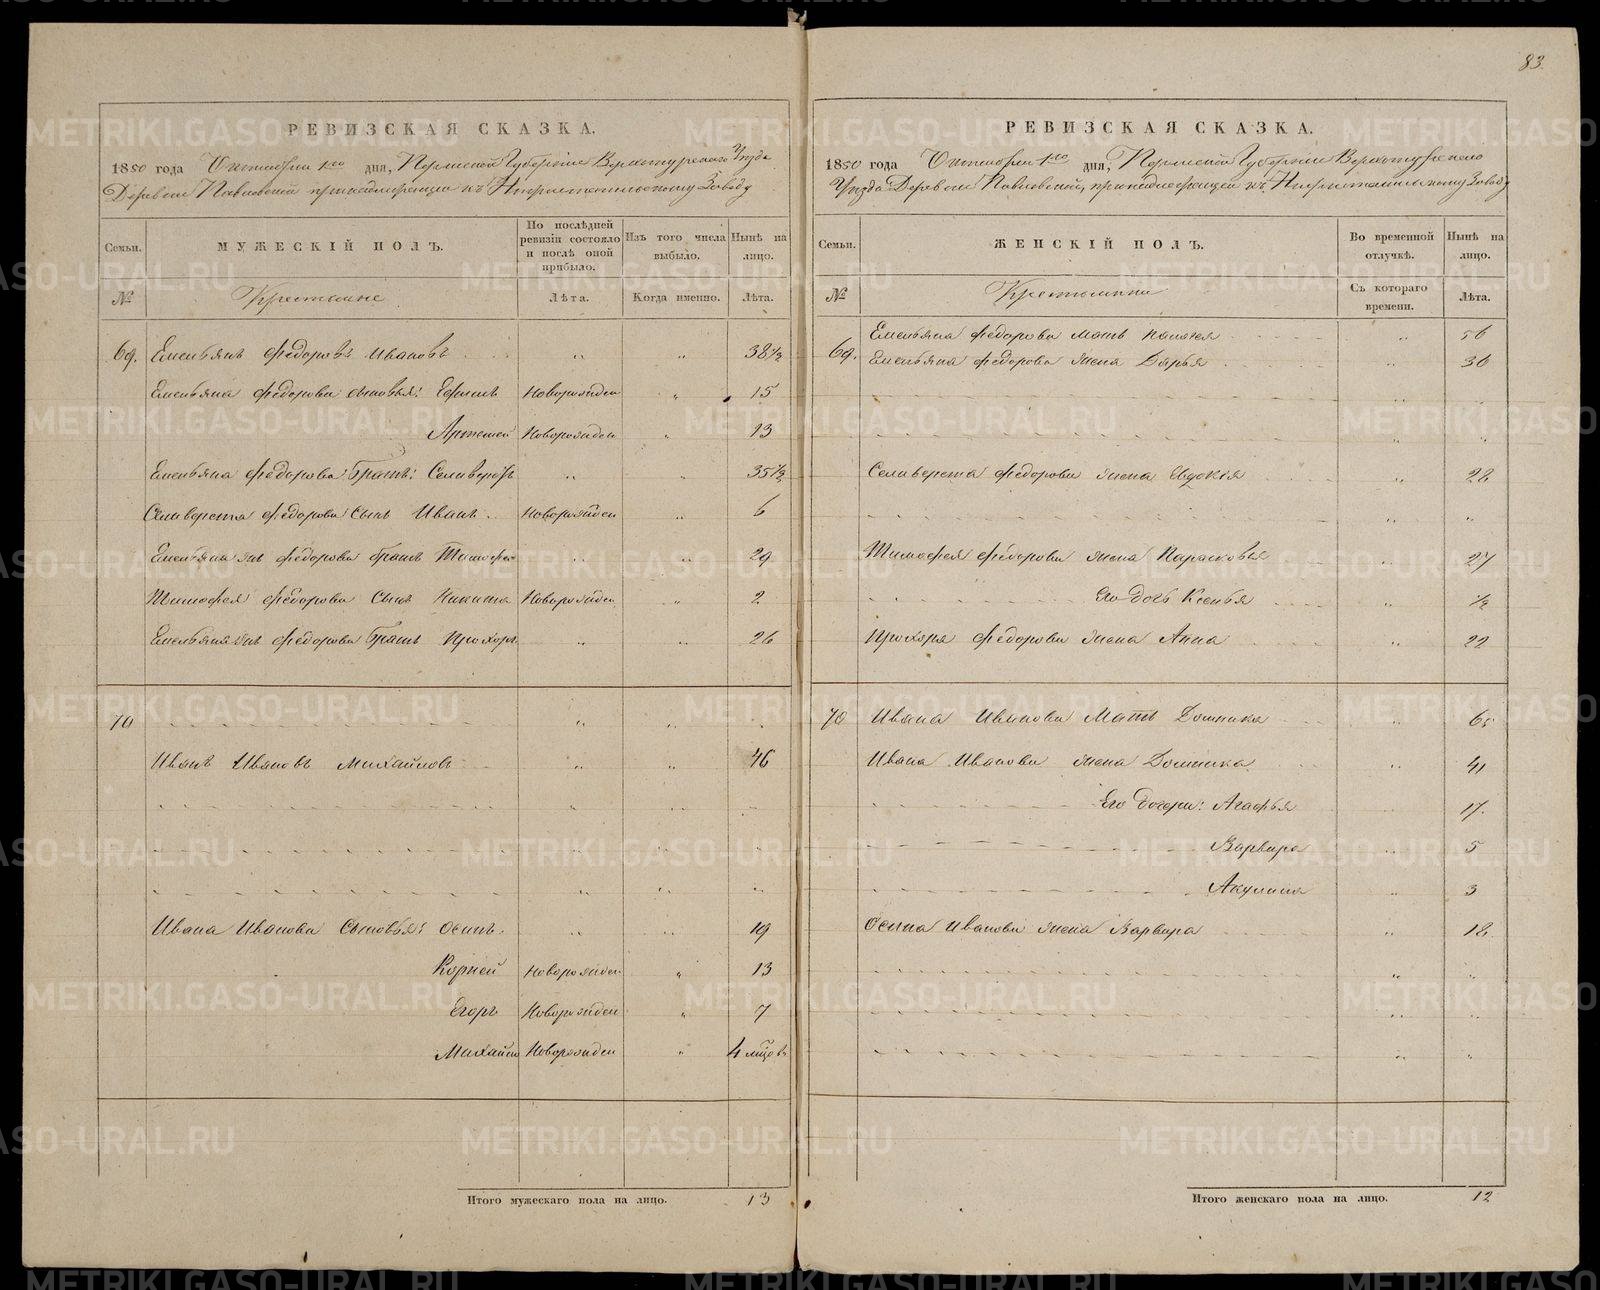 83.
РЕВИЗСКАЯ СКАЗКА.
1850 года Октября 1го дня, Пермской Губернiи Верхотурскаго Уѣзда
Деревни Павловской принадлежащей къ Завочу
Семьи.
МУЖЕСКIЙ ПОЛЪ.
По послѣдней ревизiи состояло и послѣ оной прибыло.
Изъ того числа выбыло.
Нынѣ на лицо.
№
Крестьяне
Лѣта.
Когда именно.
Лѣта.
69. Емельянъ Федоровъ Ивановъ „ „ 38½
Емельяна Федорова сыновья: Ефимъ Новорожден „ 15
Артемей Новорожден „ 13
Емельяна Федорова братъ: Селиверстъ „ „ 35½
Селиверста Федорова сынъ Иванъ Новорожден „ 6
Емельяна жъ Федорова братъ Тимофей „ „ 29
Тимофея Федорова сынъ Никита Новорожден „ 2
Емельяна жъ Федорова братъ Прохоръ „ „ 26
70 „ „
Иванъ Ивановъ Михайловъ „ „ 46
Ивана Иванова Сыновья: Осипъ „ „ 19
Корней Новорожден „ 13
Егоръ Новорожден „ 7
Михайло Новорожден „ 4
Итого мужескаго пола на лицо. 13
РЕВИЗСКАЯ СКАЗКА.
1850 года Октября 1го дня, Пермской Губернiи Верхотурскаго
Уѣзда Деревни Павловской, принадлежащей къ Заводу
Семьи.
ЖЕНСКIЙ ПОЛЪ.
Во временной отлучкѣ.
Нынѣ на лицо.
№
Крестьянки
Съ котораго времени.
Лѣта.
69. Емельяна Федорова мать „ 56
Емельяна Федорова жена Дарья „ 36
Селиверста Федорова жена Евдокiя „ 28
Тимофея Федорова жена Парасковья „ 27
Его дочь Ксенья „ ½
Прохора Федорова жена Анна „ 22
70 Ивана Иванова Мать Домника „ 65
Ивана Иванова жена Домника „ 41
Его дочери: Агафья 17.
Варвара 5
Акулина „ 3
Осипа Иванова жена Варвара „ 18
Итого женскаго пола на лицо. 12
METRIKI.GASO-URAL.RU